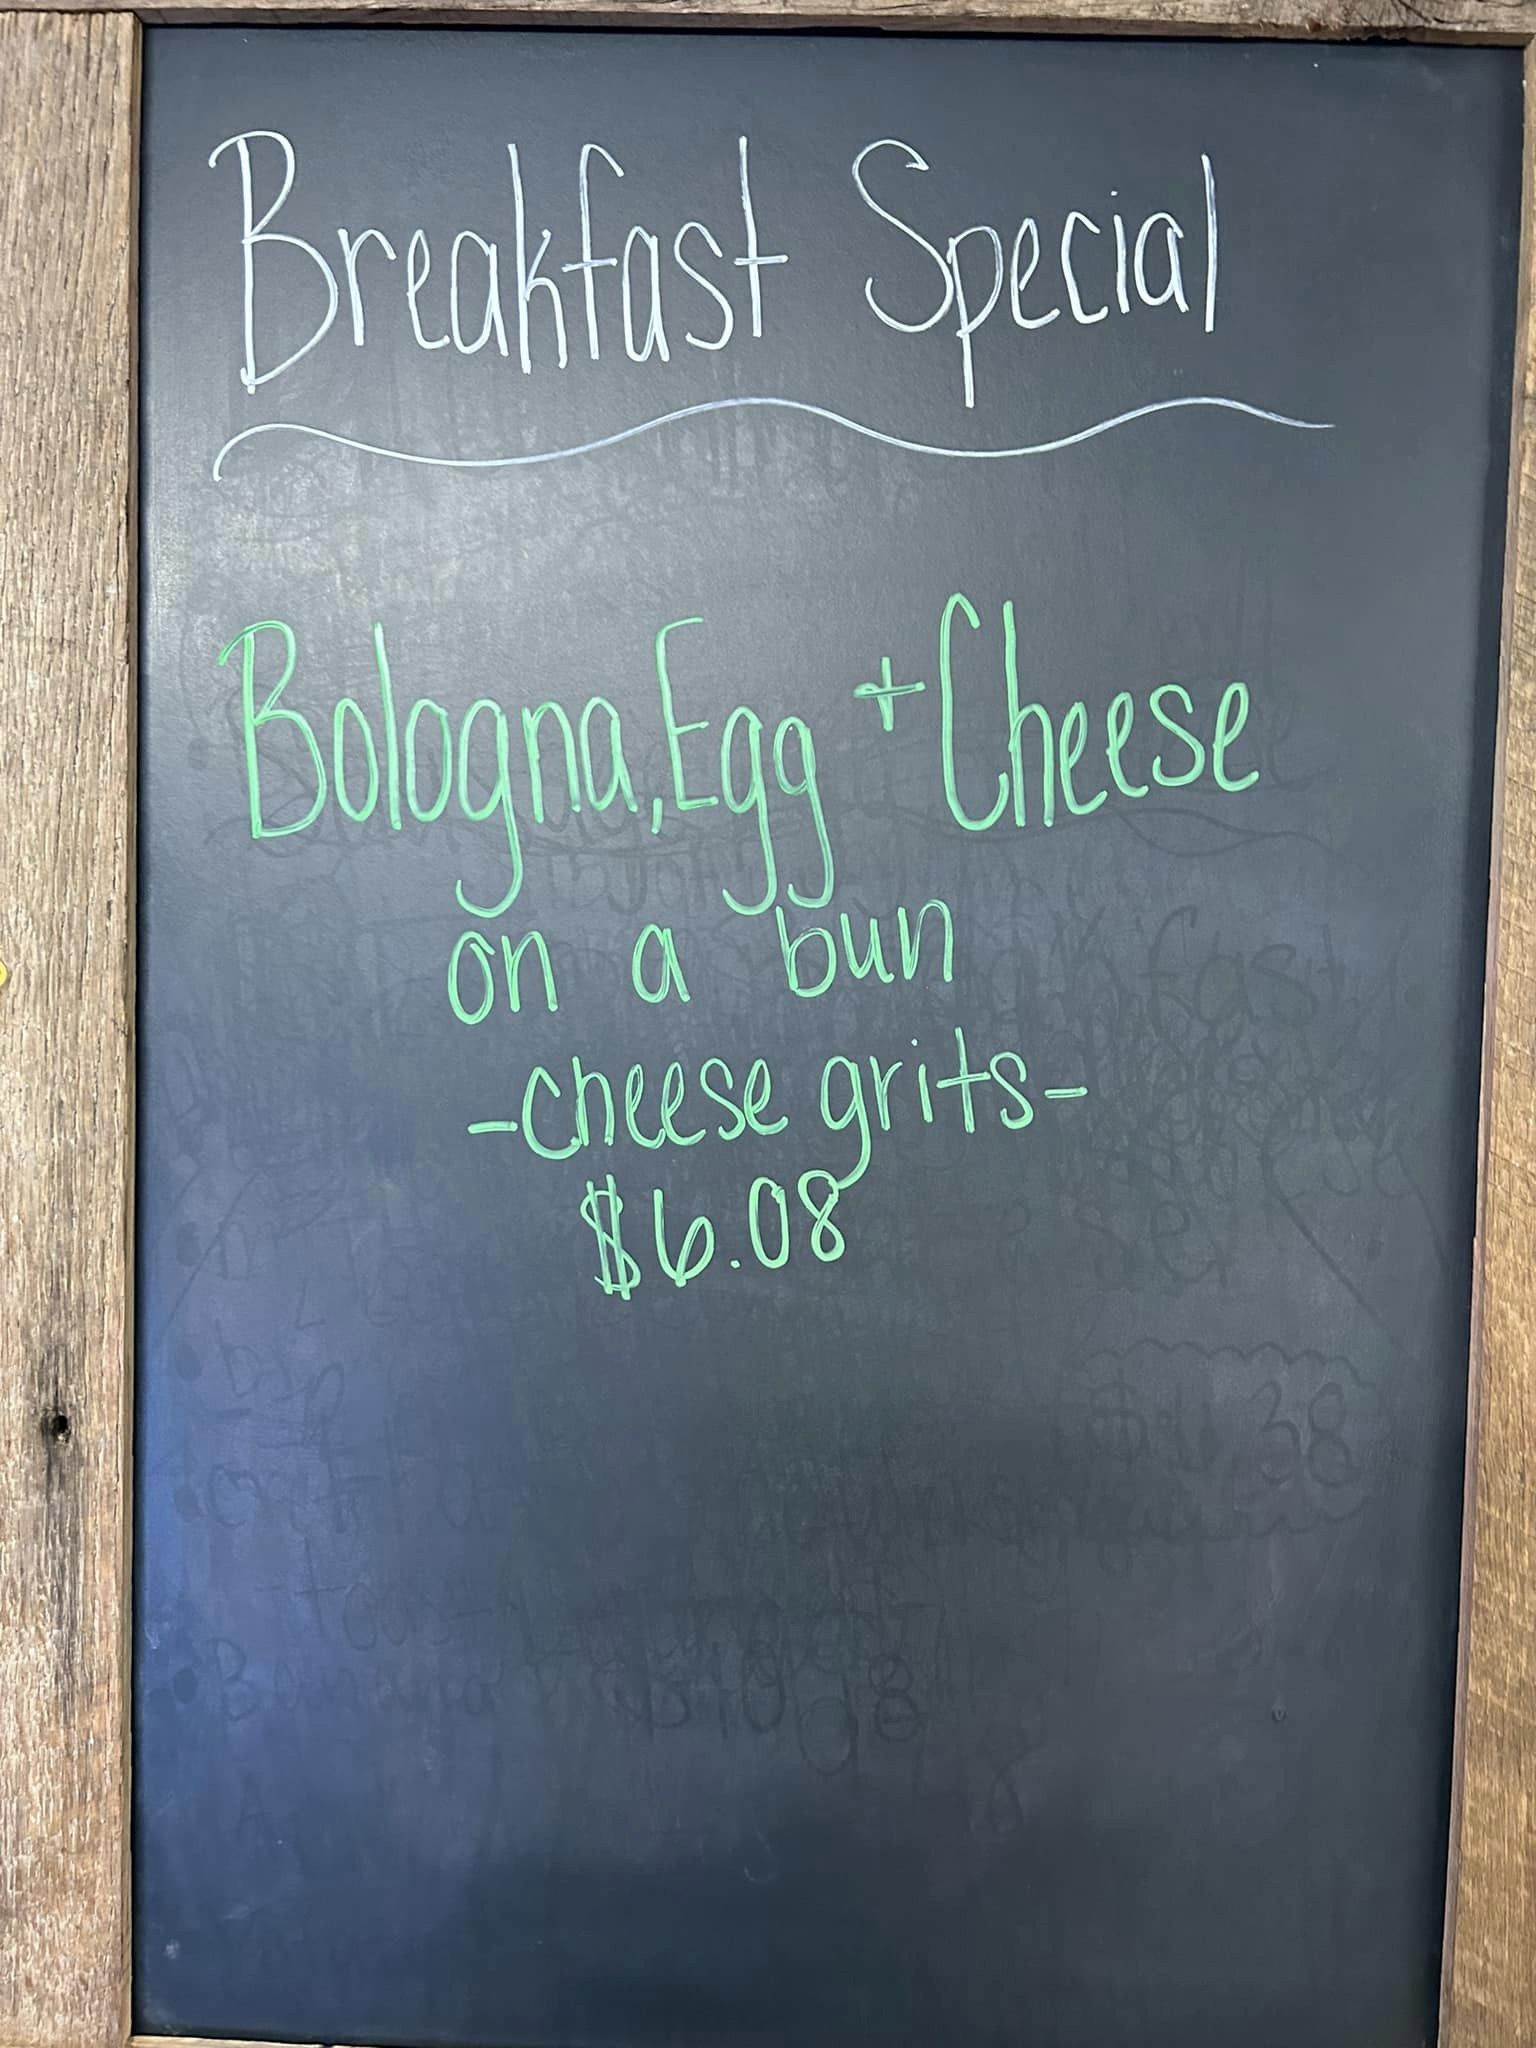 Breakfast Special
Bologna, Egg + Cheese
on a bun
-cheese grits-
$6.08